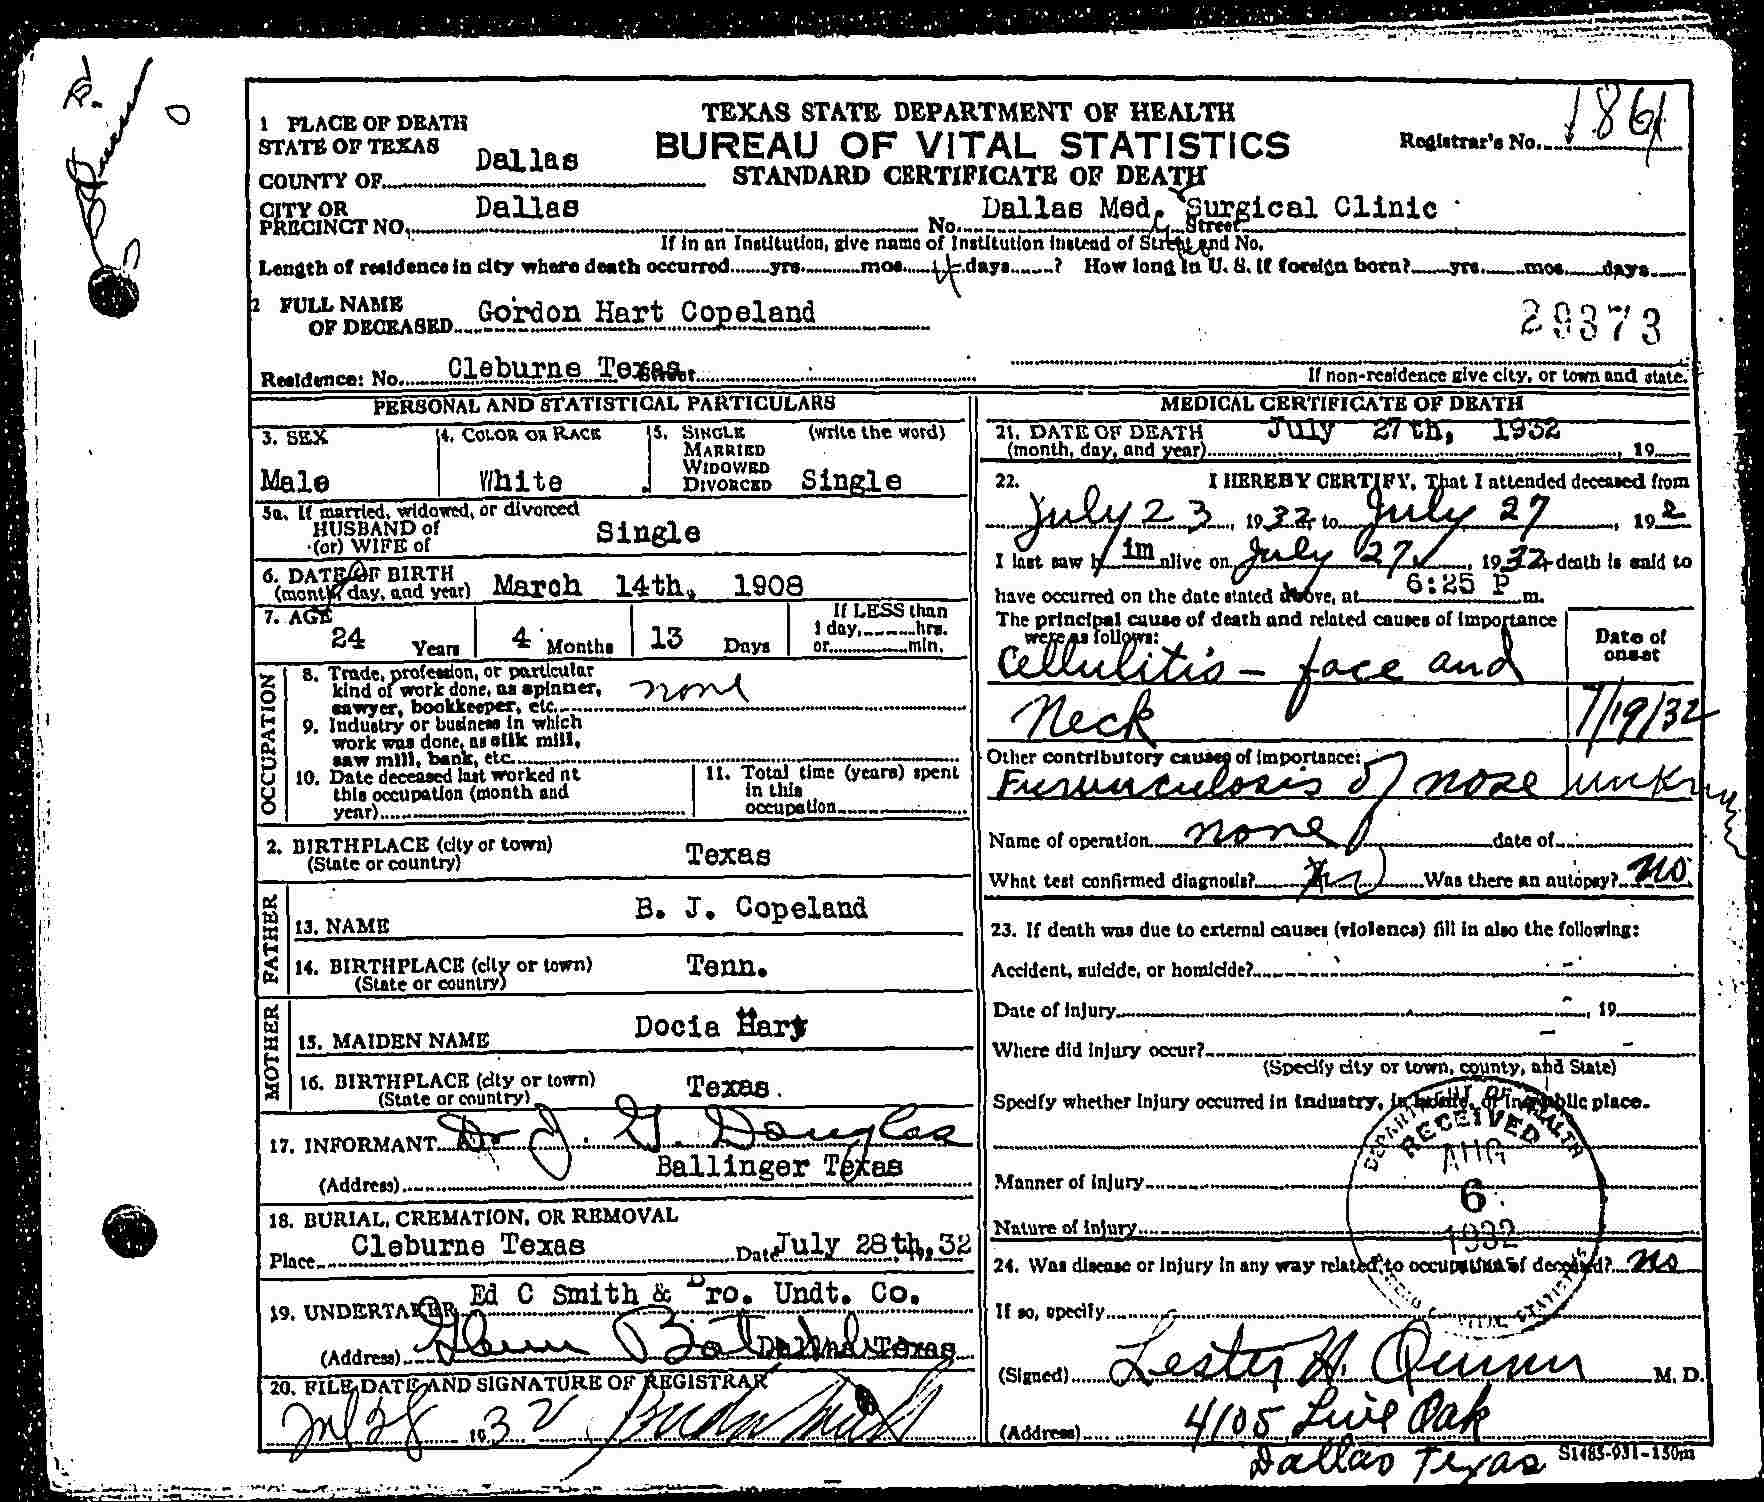 TEXAS STATE DEPARTMENT OF HEALTH
BUREAU OF VITAL STATISTICS
STANDARD CERTIFICATE OF DEATH
Registrar's No. 1861
1 PLACE OF DEATH
STATE OF TEXAS
COUNTY OF Dallas
CITY OR
PRECINCT NO. Dallas No. Dallas Med. Surgical Clinic Street
If in an Institution, give name of Institution instead of Street and No.
Length of residence in city where death occurred yrs. mos. 4 days ? How long in U. S. if foreign born? yrs. mos. days
2 FULL NAME
OF DECEASED Gordon Hart Copeland
29373
Residence: No. Cleburne Texas Street
If non-residence give city, or town and state.
PERSONAL AND STATISTICAL PARTICULARS
3. SEX
Male
4. COLOR OR RACE
White
5. SINGLE
MARRIED
WIDOWED
DIVORCED
(write the word)
Single
5a. If married, widowed, or divorced
HUSBAND of
(or) WIFE of
Single
6. DATE OF BIRTH
(month, day, and year) March 14th, 1908
7. AGE
24 Years 4 Months 13 Days
If LESS than
1 day, hrs.
or min.
OCCUPATION
8. Trade, profession, or particular
kind of work done, as spinner,
sawyer, bookkeeper, etc. none
9. Industry or business in which
work was done, as silk mill,
saw mill, bank, etc.
10. Date deceased last worked at
this occupation (month and
year)
11. Total time (years) spent
in this
occupation
2. BIRTHPLACE (city or town)
(State or country) Texas
FATHER
13. NAME B. J. Copeland
14. BIRTHPLACE (city or town)
(State or country) Tenn.
MOTHER
15. MAIDEN NAME Docia Hart
16. BIRTHPLACE (city or town)
(State or country) Texas.
17. INFORMANT Dr J. G. Douglas
(Address) Ballinger Texas
18. BURIAL, CREMATION, OR REMOVAL
Place Cleburne Texas Date July 28th, 32
19. UNDERTAKER Ed C Smith & Bro. Undt. Co.
(Address) Dallas Texas
20. FILE DATE AND SIGNATURE OF REGISTRAR
Jul 28 1932
MEDICAL CERTIFICATE OF DEATH
21. DATE OF DEATH
(month, day, and year) July 27th, 1932 19
22. I HEREBY CERTIFY, That I attended deceased from
July 23, 1932, to July 27, 192
I last saw him alive on July 27, 1932, death is said to
have occurred on the date stated above, at 6:25 P m.
The principal cause of death and related causes of importance
were as follows:
Date of
onset
Cellulitis - face and
Neck 7/19/32
Other contributory causes of importance:
Furunculosis of nose
Name of operation none date of
What test confirmed diagnosis? Was there an autopsy? no
23. If death was due to external causes (violence) fill in also the following:
Accident, suicide, or homicide? -
Date of injury - , 19
Where did injury occur? -
(Specify city or town, county, and State)
Specify whether injury occurred in industry, in home, or in public place.
Manner of injury
Nature of injury
DEPARTMENT OF HEALTH
RECEIVED
AUG
6
1932
BUREAU OF VITAL STATISTICS
24. Was disease or injury in any way related to occupation of deceased? no
If so, specify
(Signed) Lester H. Quinn M. D.
(Address) 4105 Live Oak
Dallas Texas
S1485-931-150m